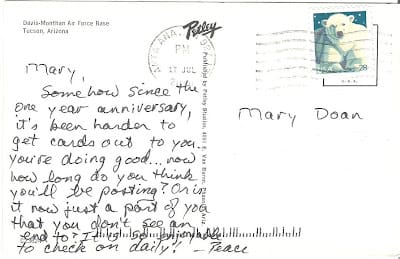 Davis-Monthan Air Force Base
Tucson, Arizona
Petley
SANTA ANA,
PM
17 JUL
USA
28
Published by Petley Studios, 4051 E. Van Buren, Phoenix, Ariz.
Mary,
Somehow since the
one year anniversary,
it's been harder to
get cards out to you.
you're doing good... now
how long do you think
you'll be posting? Or is
it now just a part of you
that you don't see an
end to? It is so enjoyable
to check on daily! - Peace
Mary Doan